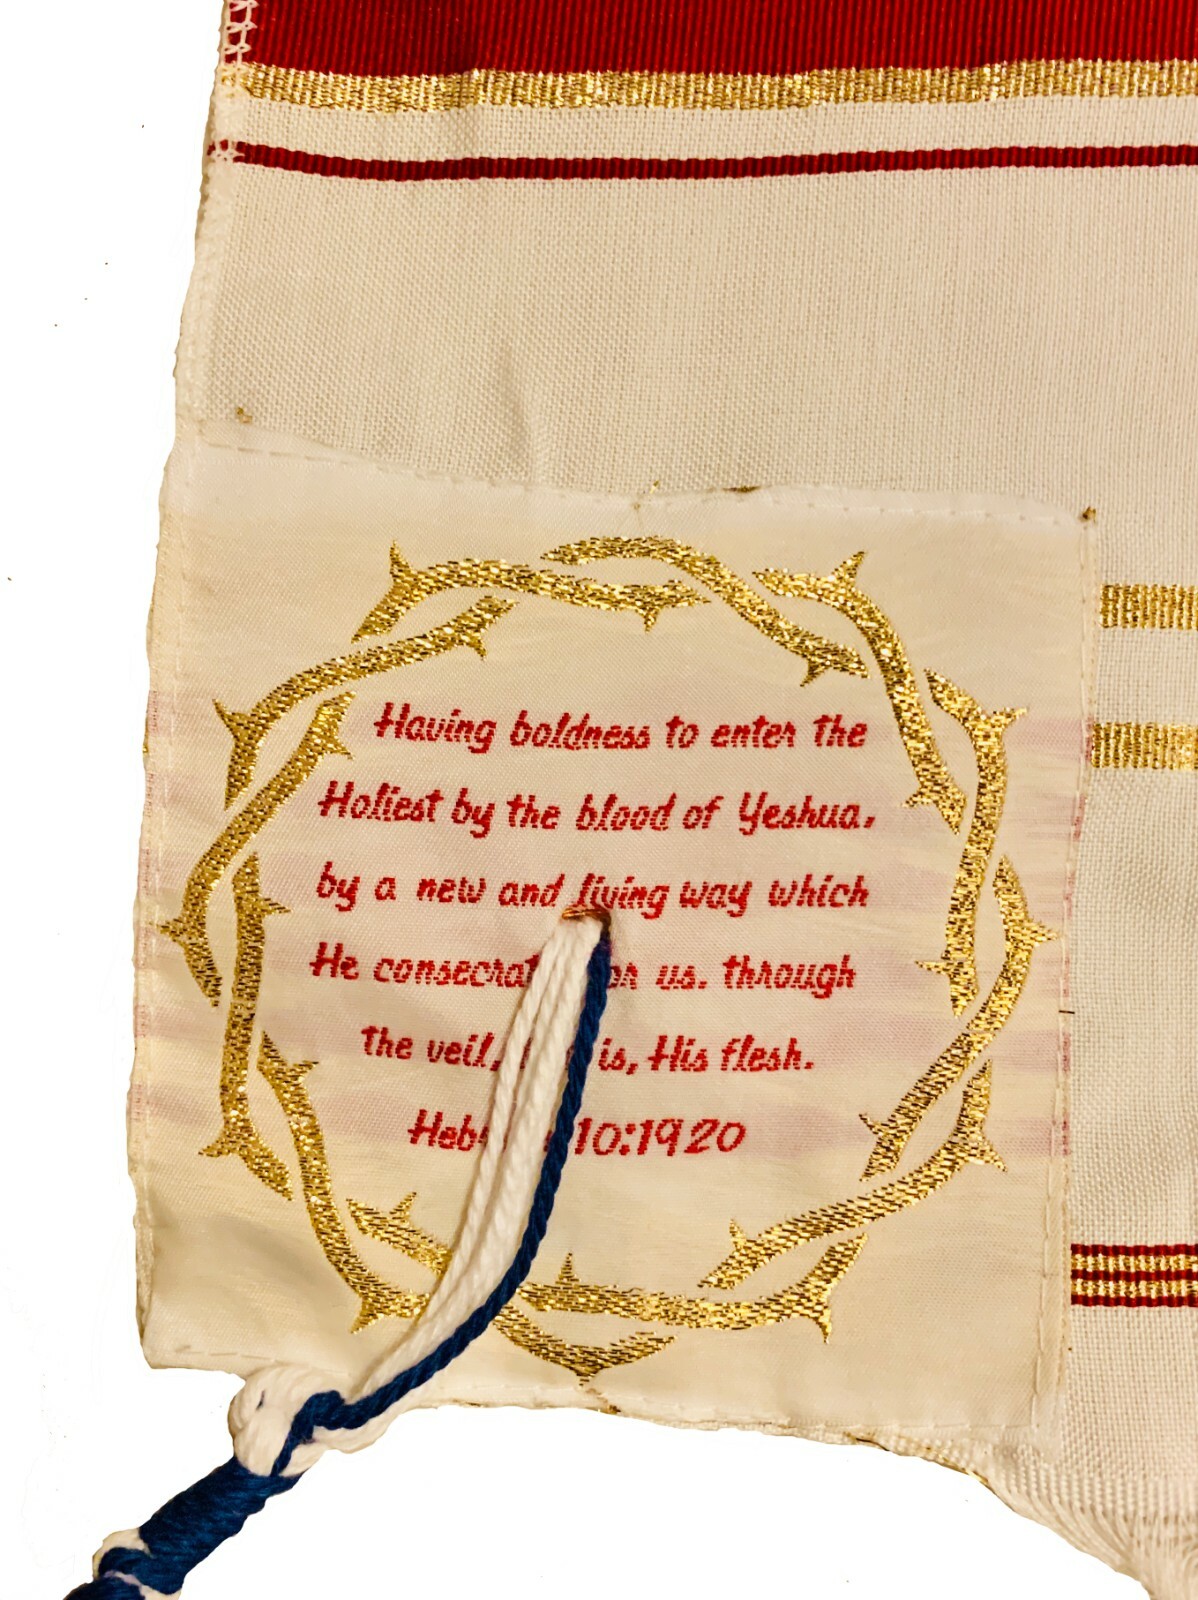 Having boldness to enter the
Holiest by the blood of Yeshua,
by a new and living way which
He consecrat or us. through
the veil, is, His flesh.
Heb 10:1920